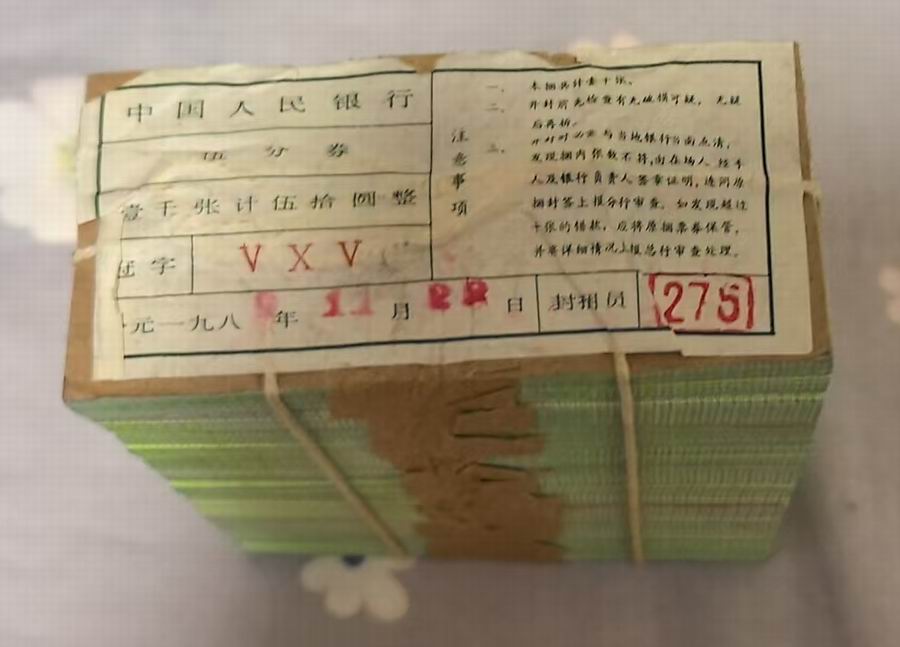 中国人民银行
伍分券
壹千张计伍拾圆整
冠字 VXV
元一九八 年 11月 日 封捆员 275
注意事项
一、本捆共计壹千张。
二、开封前先检查有无破损可疑，无疑
后再拆。
三、开封时必要与当地银行当面点清，
发现捆内张数不符，由在场人、经手
人及银行负责人签章证明，连同原
捆封签上报分行审查。如发现超过
十张的错款，应将原捆票券保管，
并将详细情况上报总行审查处理。